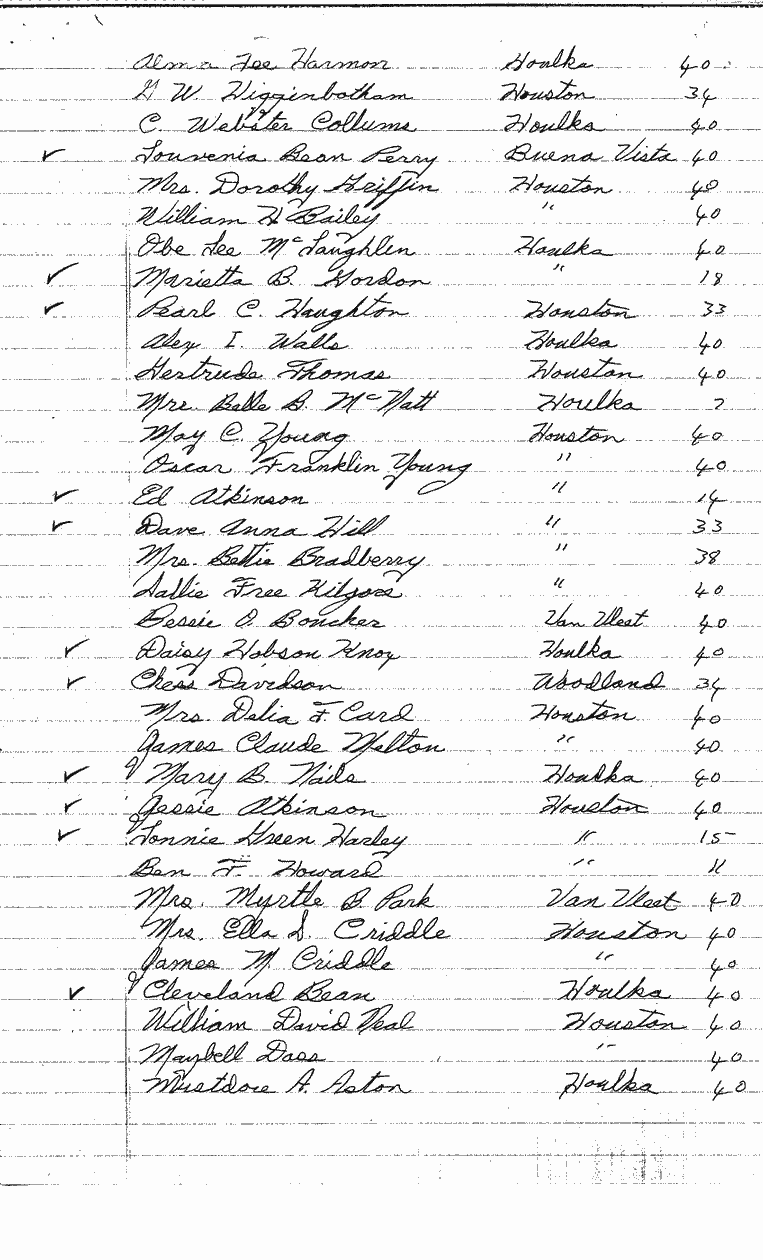 Alma Lee Harmon Houlka 40
G W. Higginbotham Houston 34
C. Webster Collums Houlka 40
✓ Louvenia Bean Perry Buena Vista 40
Mrs. Dorothy Griffin Houston 40
William H Bailey " 40
Obe Lee McLaughlin Houlka 40
✓ Marietta B. Gordon " 18
✓ Pearl C. Haughton Houston 33
Alex I. Walls Houlka 40
Gertrude Thomas Houston 40
Mrs. Belle B. McNatt Houlka ?
May C. Young Houston 40
Oscar Franklin Young " 40
✓ Ed Atkinson " 14
✓ Dave Anna Hill " 33
Mrs. Bettie Bradberry " 38
Sallie Free Kilgore " 40
Bessie O. Boncker Van Vleet 40
✓ Daisy Hobson Knox Houlka 40
✓ Chess Davidson Woodland 34
Mrs. Delia F. Card Houston 40
James Claude Melton " 40
✓ Mary B. Nails Houlka 40
✓ Jessie Atkinson Houston 40
✓ Lonnie Green Harley " 15
Ben F. Howard " 11
Mrs. Myrtle B. Park Van Vleet 40
Mrs. Ella S. Criddle Houston 40
James M. Criddle " 40
✓ Cleveland Bean Houlka 40
William David Neal Houston 40
Maybell Doss " 40
A. Aston Houlka 40